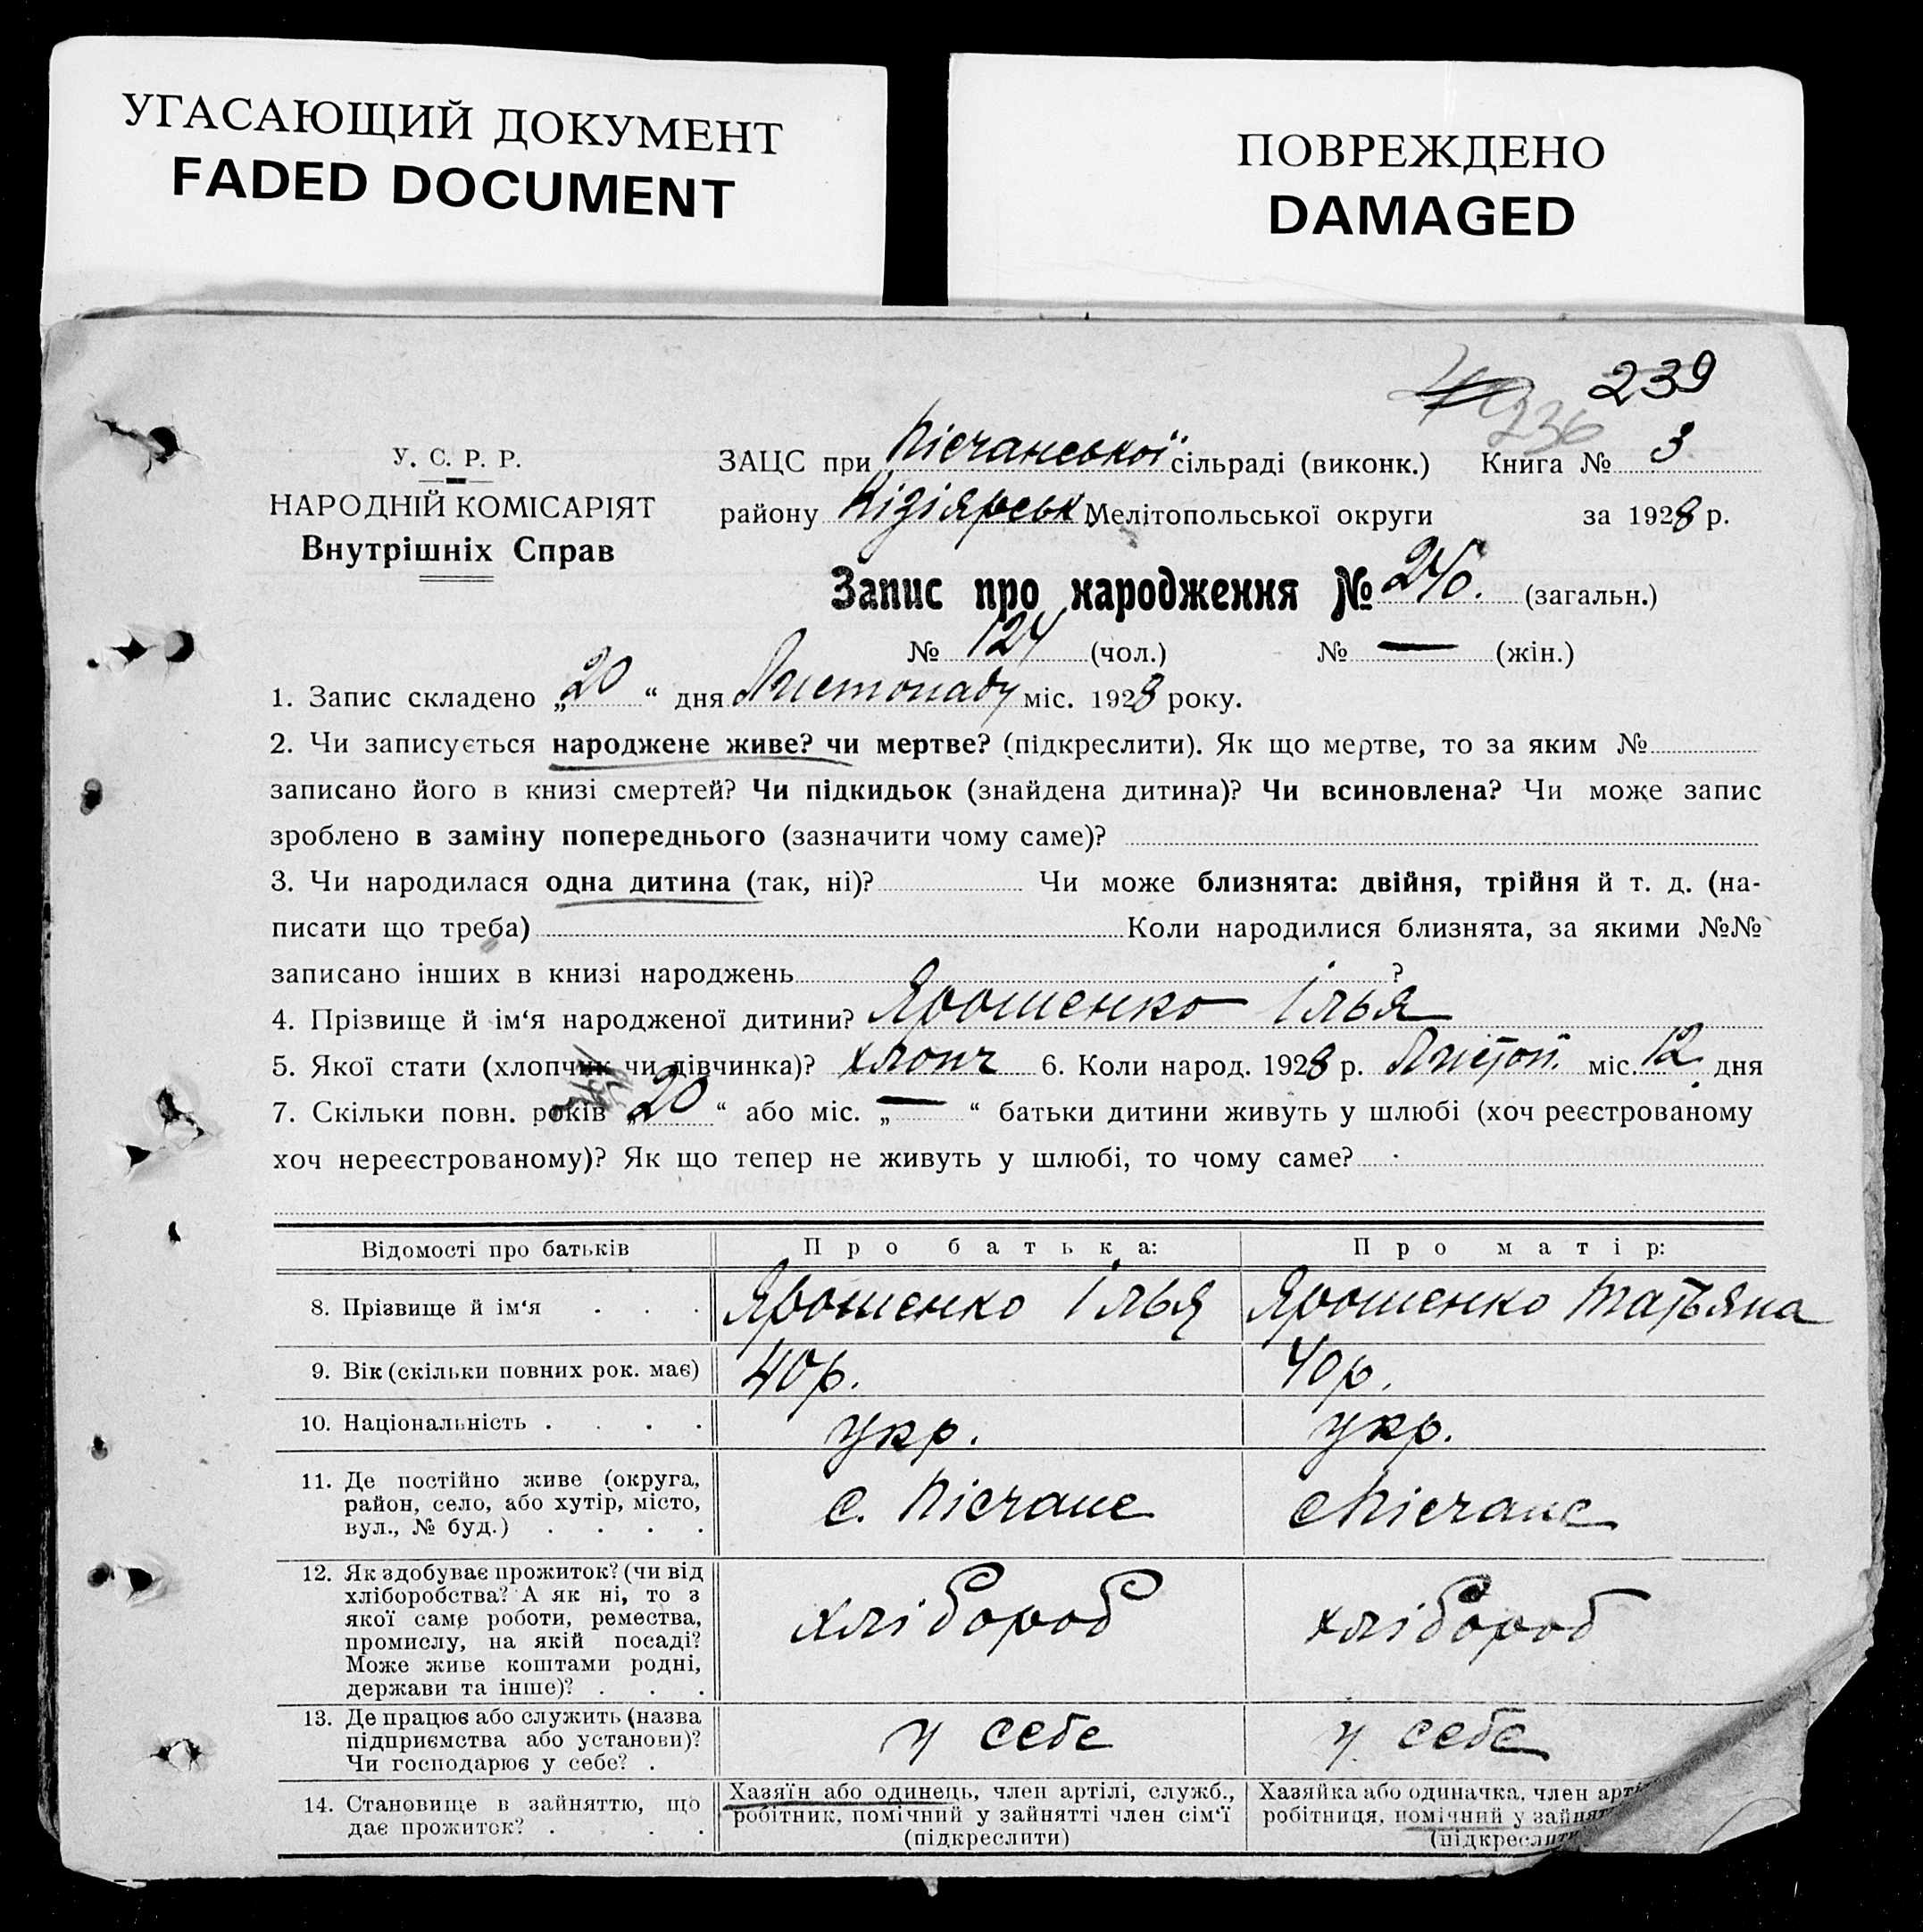 УГАСАЮЩИЙ ДОКУМЕНТ
FADED DOCUMENT
ПОВРЕЖДЕНО
DAMAGED
239
236
У. С. Р. Р.
НАРОДНІЙ КОМІСАРІЯТ
Внутрішніх Справ
ЗАЦС при Пісчанської сільраді (виконк.) Книга № 3
району Кізіярськ Мелітопольської округи за 1928 р.
Запис про народження № 246. (загальн.)
№ 124 (чол.) № — (жін.)
1. Запис складено „20“ дня Листопаду міс. 1928 року.
2. Чи записується народжене живе? чи мертве? (підкреслити). Як що мертве, то за яким №
записано його в книзі смертей? Чи підкидьок (знайдена дитина)? Чи всиновлена? Чи може запис
зроблено в заміну попереднього (зазначити чому саме)?
3. Чи народилася одна дитина (так, ні)? Чи може близнята: двійня, трійня й т. д. (на-
писати що треба) Коли народилися близнята, за якими №№
записано інших в книзі народжень ?
4. Прізвище й ім‘я народженої дитини? Ярошенко Ілья
5. Якої стати (хлопчик чи дівчинка)? хлопч 6. Коли народ. 1928 р. Листоп. міс. 12. дня
7. Скільки повн. років „20“ або міс. „—“ батьки дитини живуть у шлюбі (хоч реєстрованому
хоч нереєстрованому)? Як що тепер не живуть у шлюбі, то чому саме?
Відомості про батьків Про батька: Про матір:
8. Прізвище й ім‘я . . . Ярошенко Ілья Ярошенко Татьяна
9. Вік (скільки повних рок. має) 40р. 40р.
10. Національність . . . . укр. укр.
11. Де постійно живе (округа,
район, село, або хутір, місто,
вул., № буд.) . . . .
с. Пісчане с Пісчане
12. Як здобуває прожиток? (чи від
хліборобства? А як ні, то з
якої саме роботи, ремества,
промислу, на якій посаді?
Може живе коштами родні,
держави та інше)? . . .
хлібороб хлібороб
13. Де працює або служить (назва
підприємства або установи)?
Чи господарює у себе? .
у себе у себе
14. Становище в зайняттю, що
дає прожиток? . . .
Хазяїн або одинець, член артілі, служб.,
робітник, помічний у зайнятті член сім‘ї
(підкреслити)
Хазяйка або одиначка, член арті
робітниця, помічний у зайнят
(підкреслити